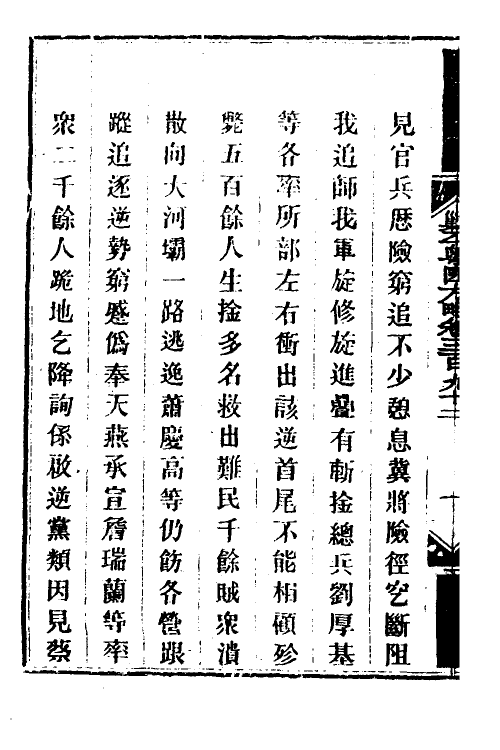 見官兵歴險窮追不少憩息冀將險徑空斷阻
我追師我軍旋修旋進疊有斬擒總兵劉厚基
等各率所部左右衝出該逆首尾不能相顧殄
斃五百餘人生擒多名救出難民千餘賊衆潰
散向大河壩一路逃逸蕭慶高等仍飭各營跟
蹤追逐逆勢窮蹙僞奉天燕承宣詹瑞蘭等率
衆二千餘人跪地乞降詢係啟逆黨類因見蔡